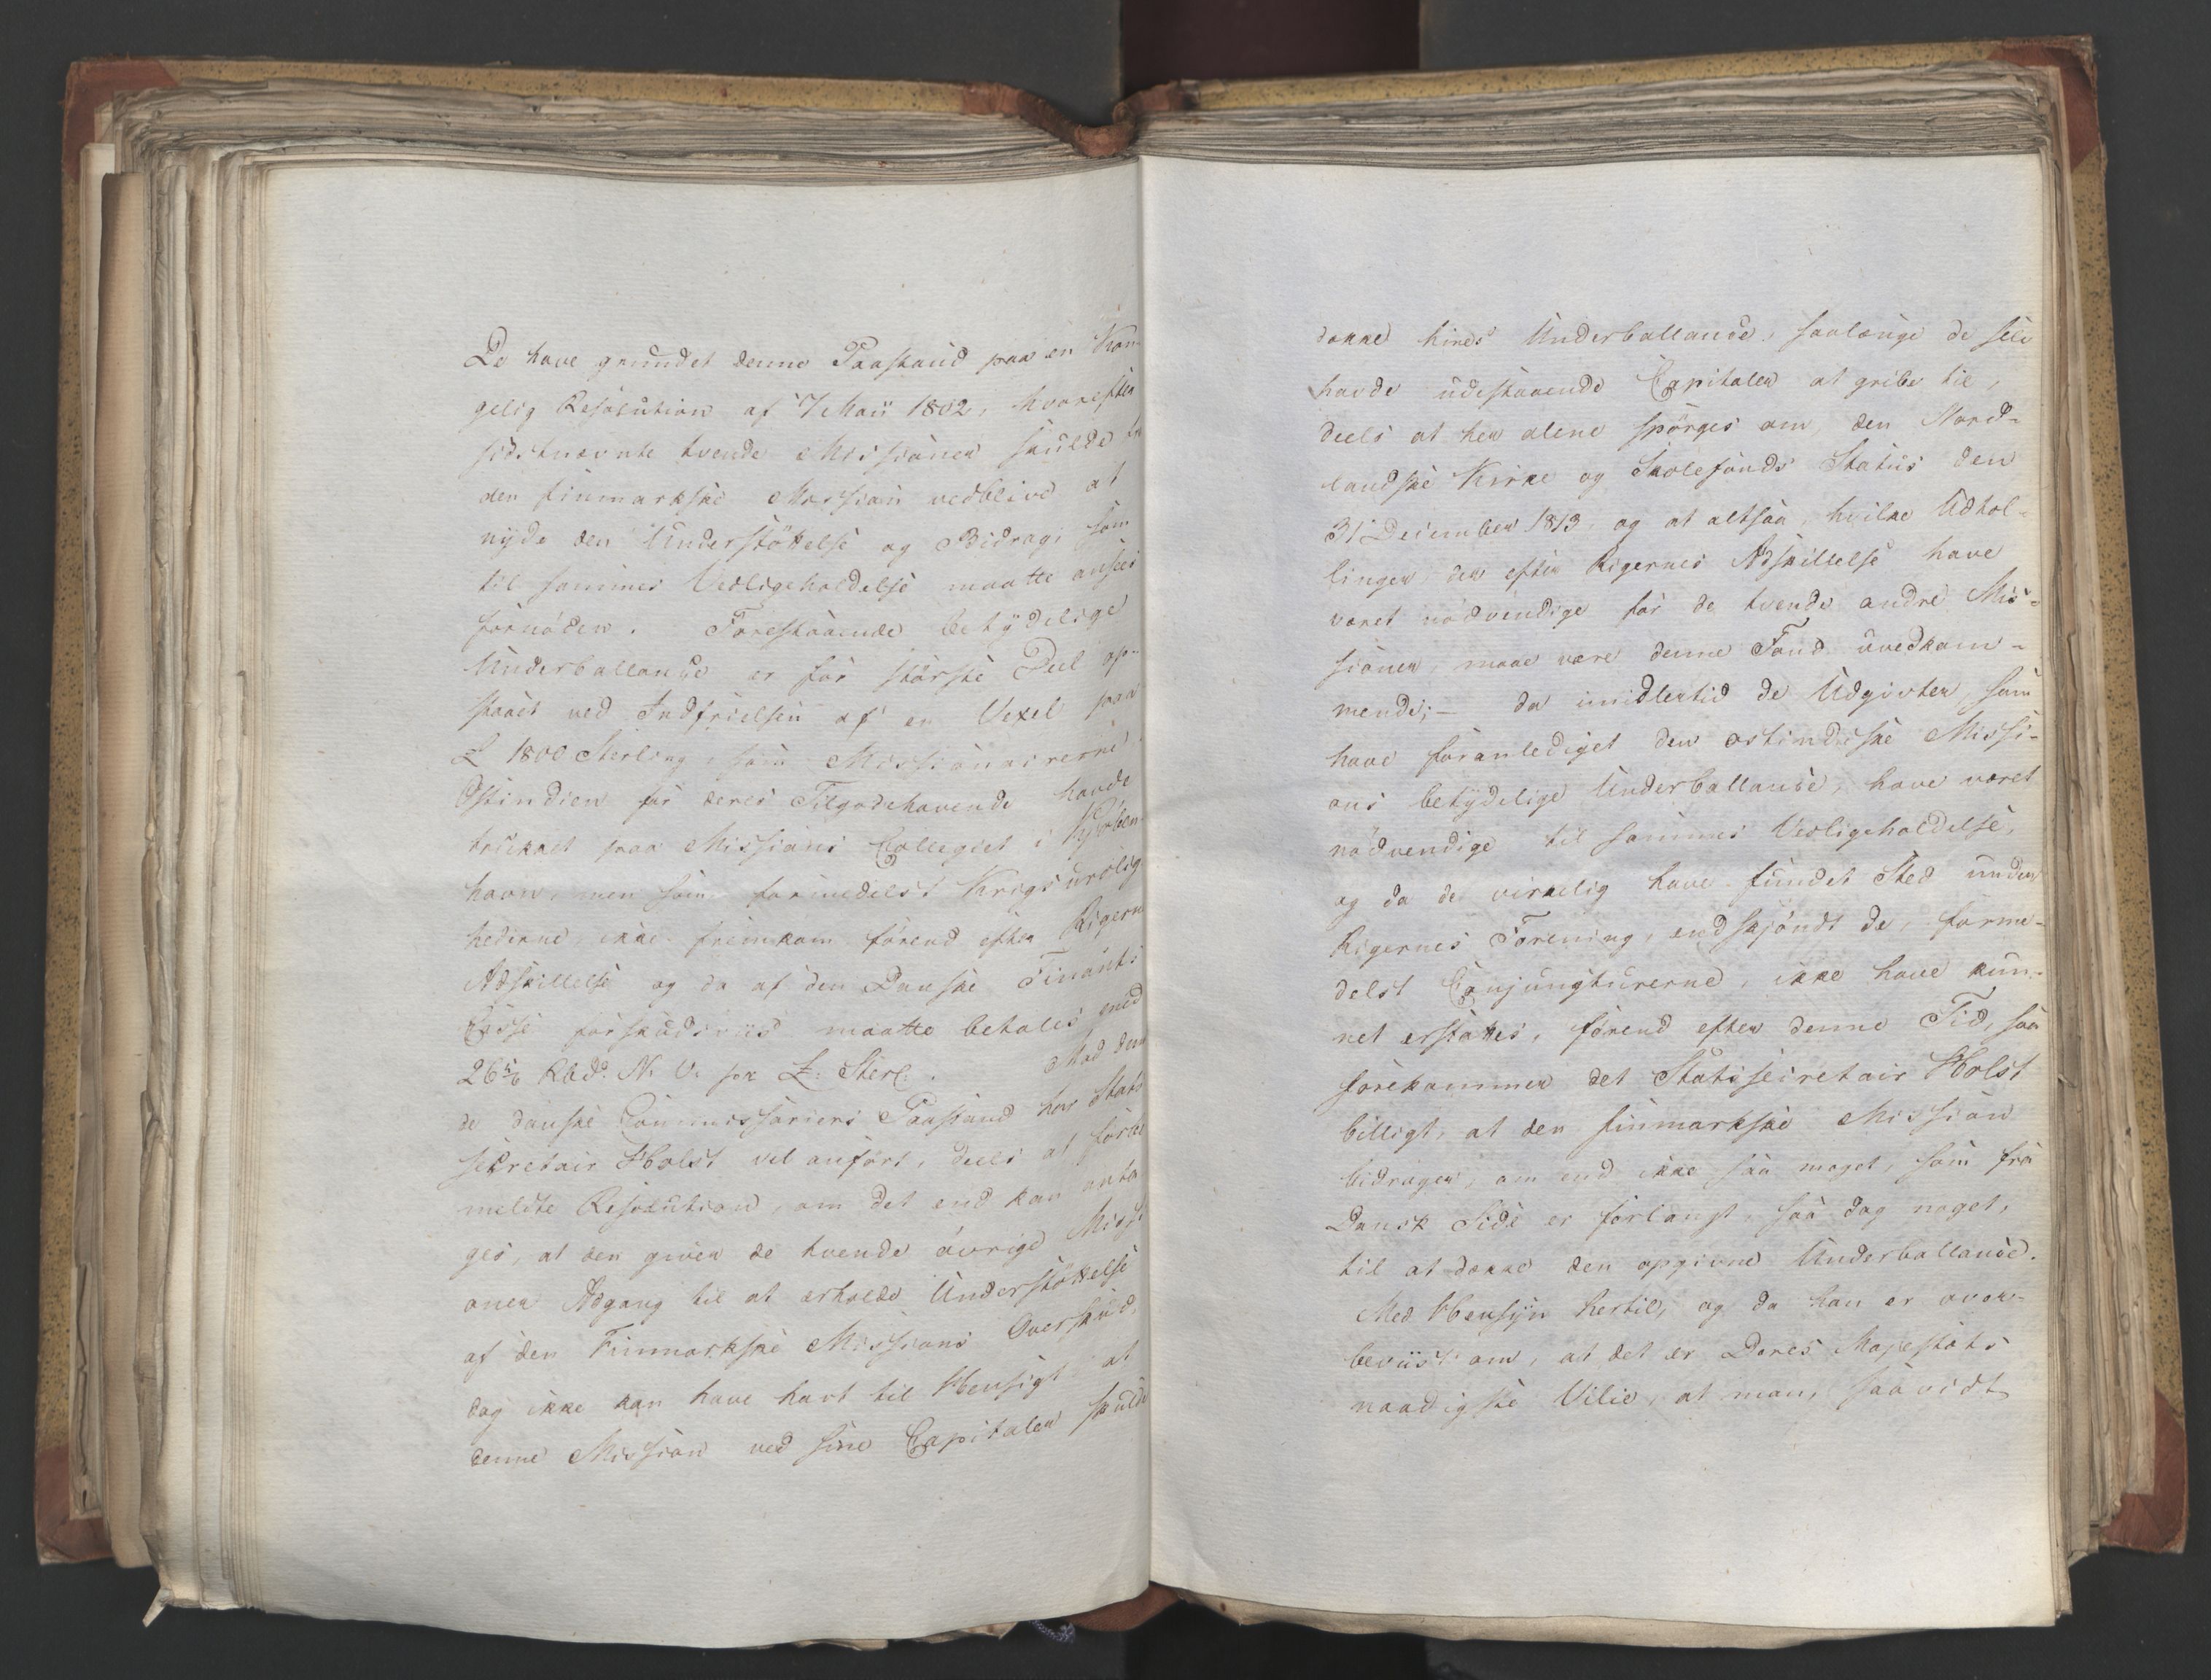 De have grundet denne Paastand paa en Kon-
gelig Resolution af 7 Maii 1802, hvorefter
sidstnævnte tvende Missioner skulde fra
den finmarkske Mission vedblive at
nyde den Understöttelse og Bidrag, som
til sammes Vedligeholdelse maatte ansees
fornöden. Forestaaende betydelige
Underballance er for störste Deel op-
staaet ved Indfrielsen af en Vexel paa
£ 1800 Sterling, som Missionairerne i
Ostindien for deres Tilgodehavende havde
trukket paa Missions Collegiet i Kjöben-
havn, men som formedelst Krigsurolig
hederne, ikke fremkom förend efter Rigernes
Adskillelse og da af den Danske Finants
Casse forskudsviis maatte betales med
26 5/6 Rbd. N. V. pr £: Sterl: . Mod denne
de danske Commissariers Paastand har Stats
secretair Holst vel anfört, deels at forbe
meldte Resolution, om det end kan anta
ges, at den giver de tvende övrige Missi
oner Adgang til at erholde Understöttelse
af den Finmarkske Missions Overskud,
dog ikke kan have havt til Hensigt at
denne Mission ved sine Capitaler skulde
dække hines Underballance, saalænge de selv
havde udestaaende Capitaler at gribe til,
deels at her alene spörges om den Nord-
landske Kirke og Skolefonds Status den
31 December 1813, og at altsaa, hvilke Udtel-
linger der efter Rigernes Adskillelse have
været nödvendige for de tvende andre Mis-
sioner, maae være denne Fond uvedkom-
mende; – da imidlertid de Udgivter, som
have foranlediget den ostindiske Missi-
ons betydelige Underballance, have været
nödvendige til sammes Vedligeholdelse,
og da de virkelig have fundet Sted under
Rigernes Forening, endskjöndt de, forme-
delst Conjungturerne, ikke have kun-
net erstattes, förend efter denne Tid, saa
forekommer det Statssecretair Holst
billigt, at den finmarkske Mission
bidrager, om end ikke saa meget, som fra
Dansk Side er forlangt, saa dog noget,
til at dække den opgivne Underballance.
Med Hensyn hertil, og da han er over-
beviist om, at det er Deres Majestæts
naadigste Villie, at man, saavidt